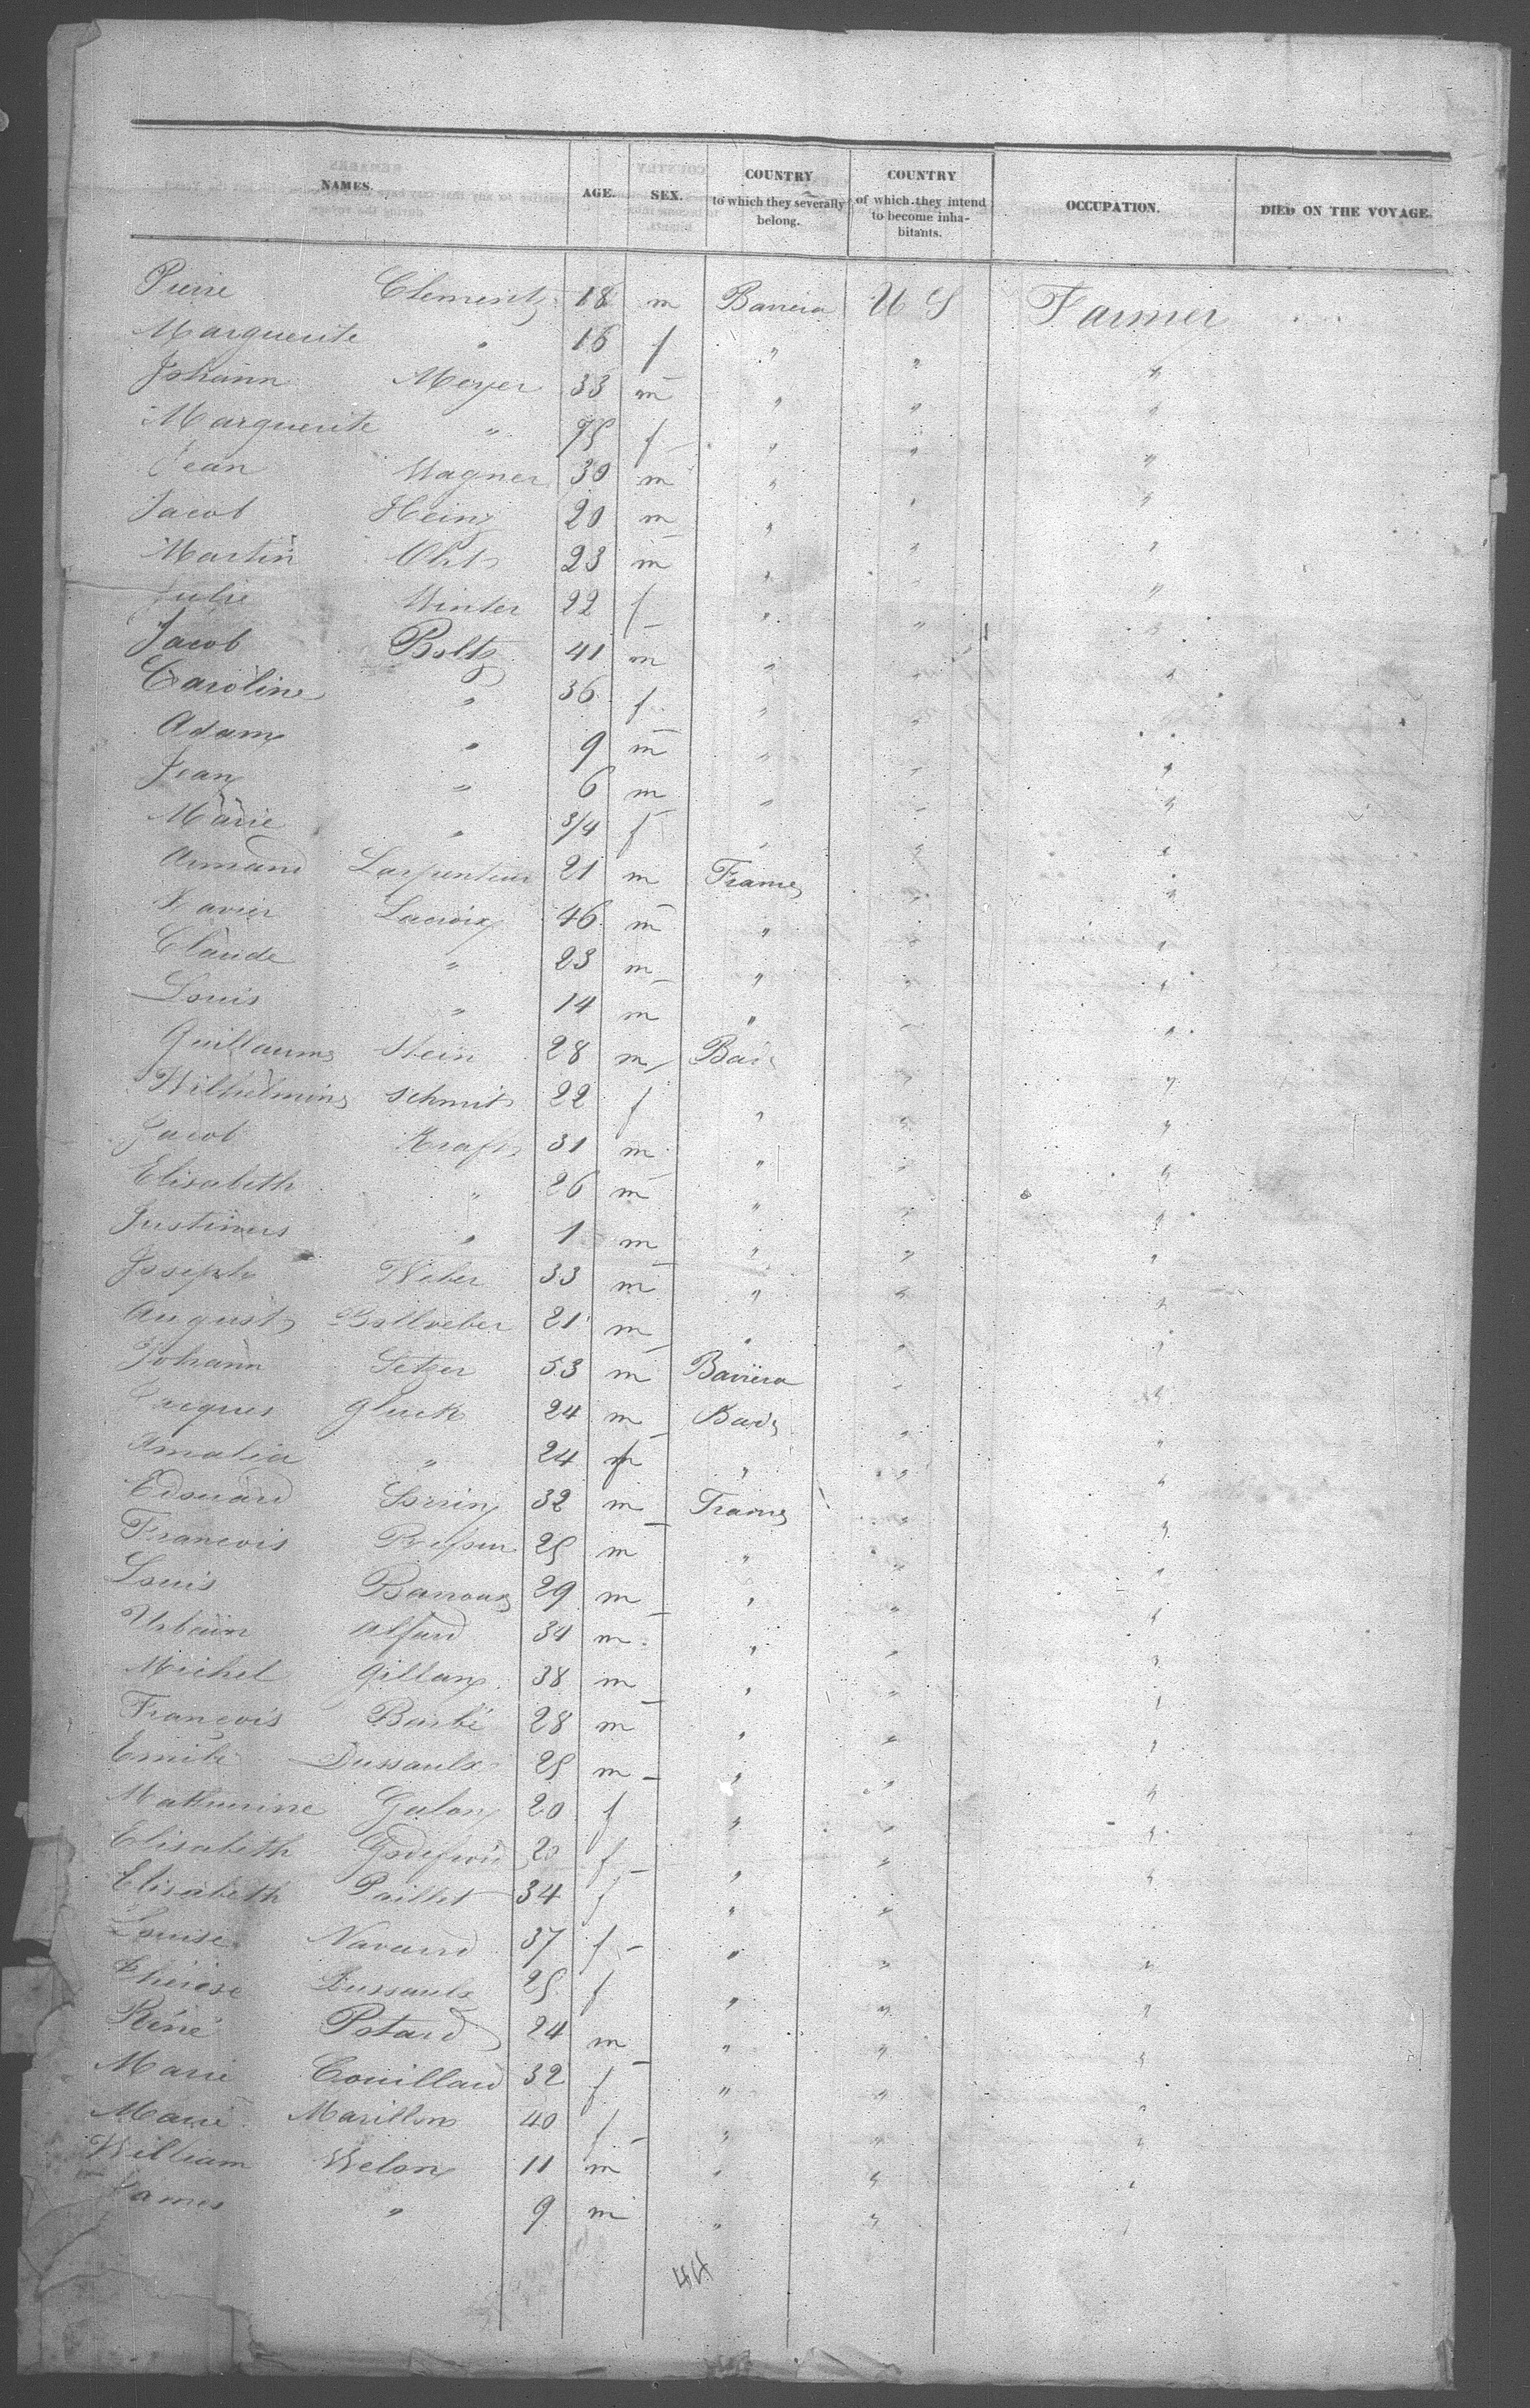 NAMES. AGE. SEX. COUNTRY to which they severally belong. COUNTRY of which they intend to become inhabitants. OCCUPATION. DIED ON THE VOYAGE.
Pierre Clementz 18 m Baviera U S Farmer
Marguerite " 16 f " " "
Johann Meyer 33 m " " "
Marguerite " 75 f " " "
Jean Wagner 30 m " " "
Jacob Heinz 20 m " " "
Martin 23 m " " "
Julie Winter 22 f " " "
Jacob Boltz 41 m " " "
Caroline " 36 f " " "
Adam " 9 m " " "
Jean " 6 m " " "
Marie " 3/4 f " " "
Armand Larpenteur 21 m France " "
Xavier Lacroix 46 m " " "
Claude " 23 m " " "
Louis " 14 m " " "
Guillaume Stein 28 m Bade " "
Wilhelmine Schmit 22 f " " "
Jacob Kraft 31 m " " "
Elisabeth " 26 m " " "
Justinus " 1 m " " "
Joseph Weber 33 m " " "
August Bollweber 21 m " " "
Johann Setzer 53 m Baviera " "
Jacques Gluck 24 m Bade " "
Amalia " 24 f " " "
Edouard 32 m France " "
Francois 25 m " " "
Louis Barroux 29 m " " "
Urbain 34 m " " "
Michel Gillan 38 m " " "
François Barbé 28 m " " "
Emile Dussaulx 25 m " " "
Mathurine Gulon 20 f " " "
Elisabeth Godefroid 20 f " " "
Elisabeth Paillet 34 f " "
Louise Navarre 37 f " " "
Thérèse Dussaulx 25 f " " "
Réné Potard 24 m " " "
Marie Couillard 32 f " " "
Marie Marillon 40 f " " "
William Welon 11 m " " "
James " 9 m " " "
44